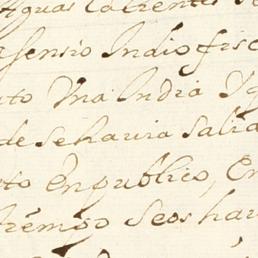 Aguas Calientes
asensio Indio fisc
to Vna India Yg
de sehavia salia
to En publico, En
tremço Seos hau